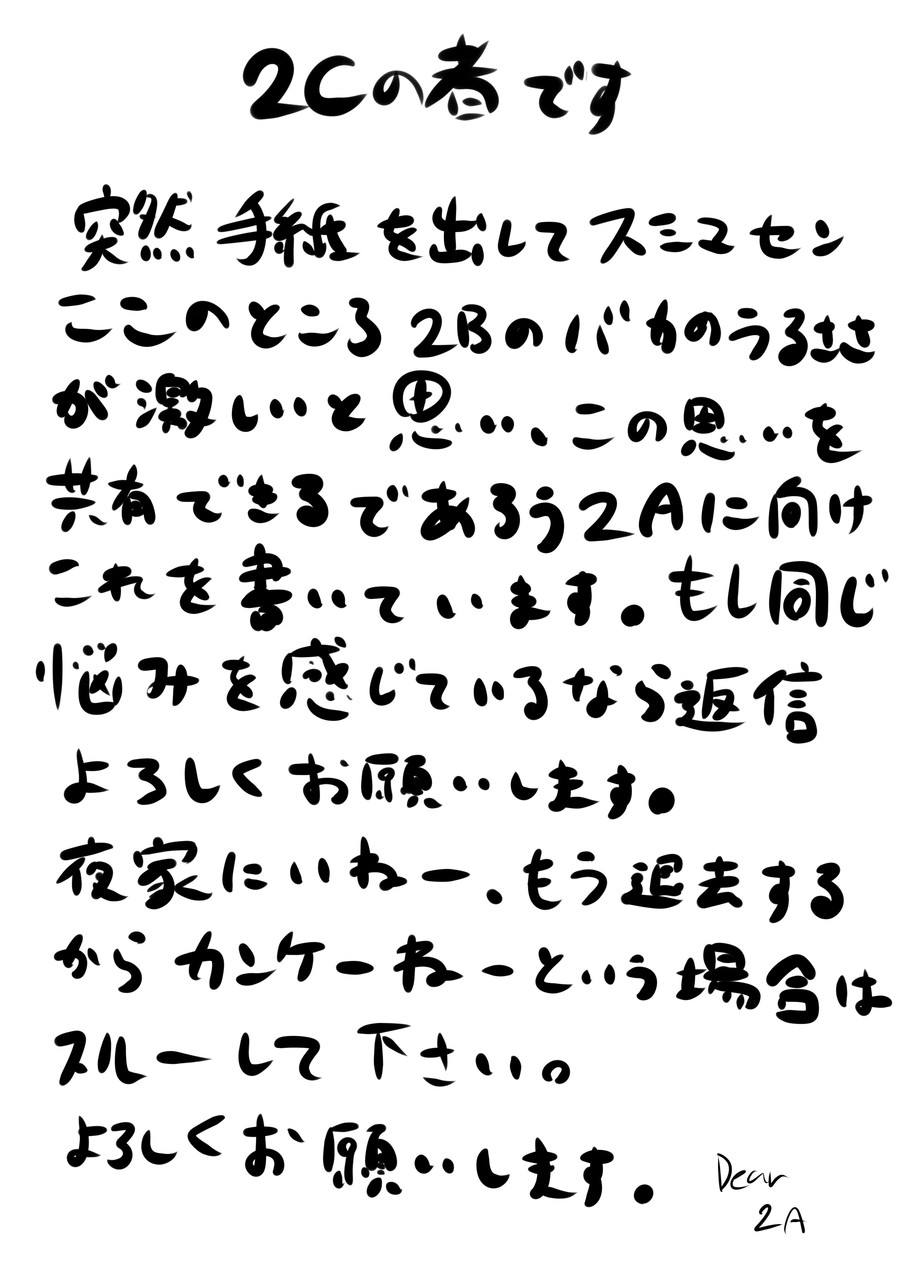 2Cの者です
突然手紙を出してスミマセン
ここのところ2Bのバカのうるささ
が激しいと思い、この思いを
共有できるであろう2Aに向け
これを書いています。もし同じ
悩みを感じているなら返信
よろしくお願いします。
夜家にいねー、もう退去する
からカンケーねーという場合は
スルーして下さい。
よろしくお願いします。
Dear
2A